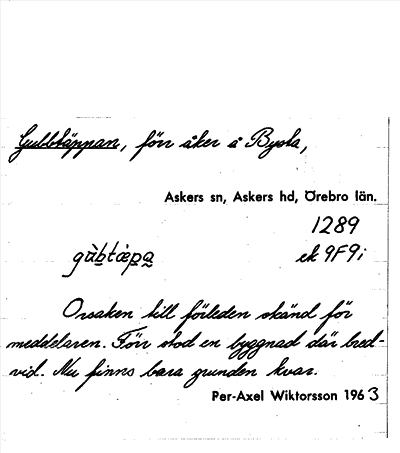 Gubbtäppan, förr åker å Bysta,
Askers sn, Askers hd, Örebro län.
1289
gùbtæpa ek 9F9i
Orsaken till förleden okänd för
meddelaren. Förr stod en byggnad där bred-
vid. Nu finns bara grunden kvar.
Per-Axel Wiktorsson 1963